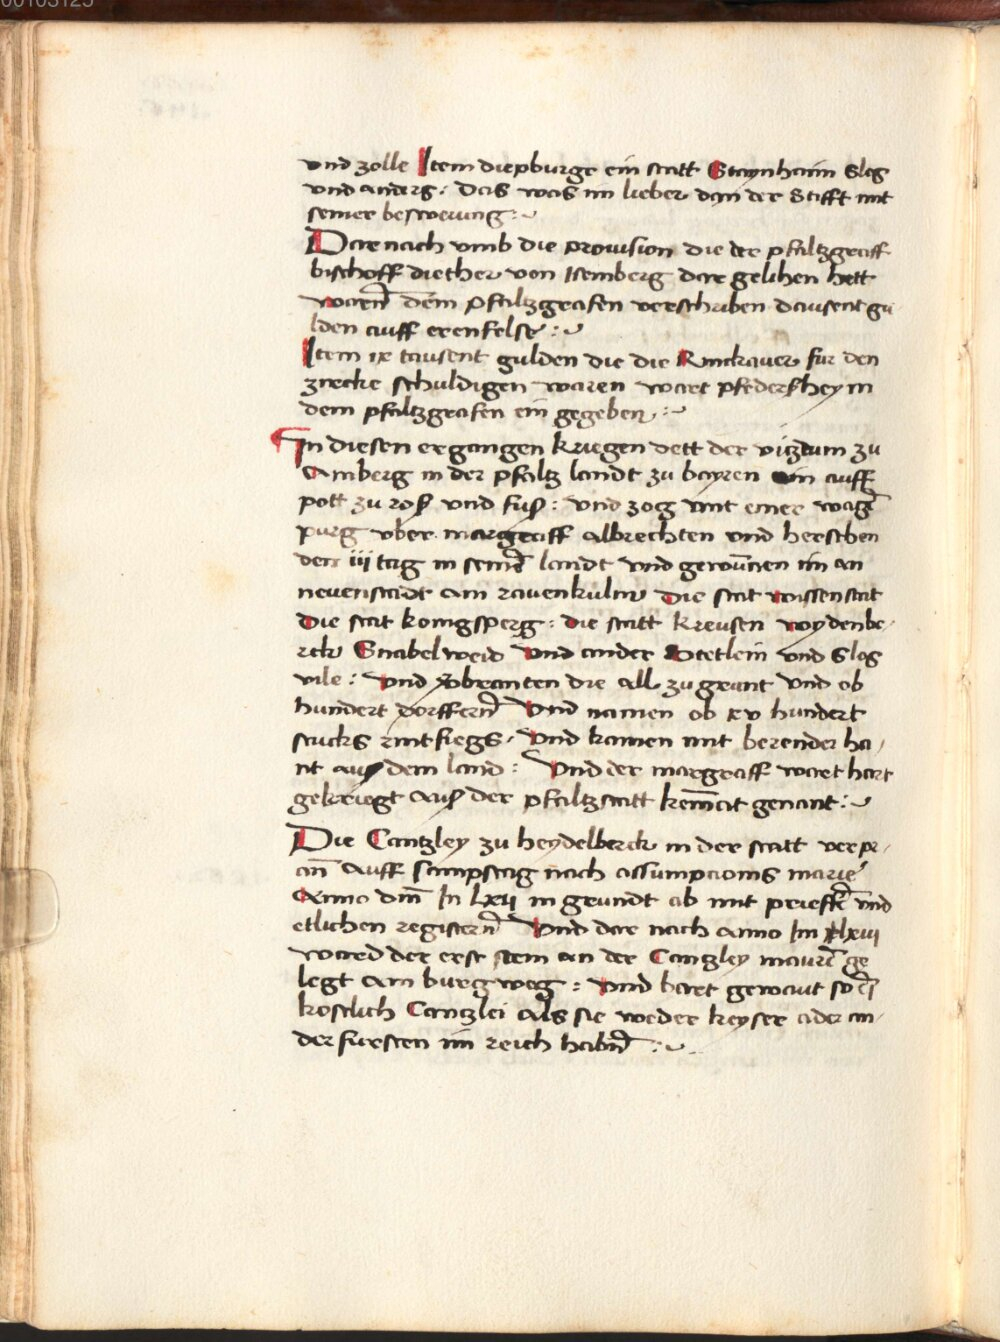 00103125
vnd zolle Item diepburge ein statt Staynhaim Slos
vnd anders. Das was im lieber dan der Stifft mit
seiner beswerung :~
Darnach vmb die provision die der pfaltzgraff
bischoff diether von Isemberg dar gelihen hett
warn̄ dem pfaltzgrafen verschriben dausent gu
lden auff erenfelse :~
Item ix tausent gulden die die Rinckauer fur den
zurcke schuldigen waren wart pfedersheym
dem pfaltzgrafen ein gegeben :~
In diesen ergangen kriegen dett der viztum zu
Amberg in der pfaltz landt zu bayren ein auff
pott zu ros vnd fus : vnd zog mit einer wagē
purg vber margraff albrechten vnd herschten
den iii tag in seinē landt vnd gewūnen im an
neuenstadt am rauenkulm die stat wissenstat
die stat konigsperg : die statt kreusen weydenbe,
rck Gnabelweid vnd ander Stetlein vnd Slos
vile : vnd v͂branten die all zu grunt vnd ob
hundert dorffern̄ vnd namen ob xv hundert
stucks rintfiegs. vnd kamen mit berender ha,
nt aus dem land : vnd der margraff wart hart
gekriegt aus der pfaltzstatt kem̄nat genant :~
Die Cantzley zu heydelberck in der statt verpr,
an̄ auff sampstag nach assumpcionis marie
Anno dm̄ In lxii in grundt ab mit prieffē vnd
etlichen registern̄ vnd dar nach anno Im lxiii
ward der erst stem an der Cantzley maurē ge
legt am burgweg : vnd hart gewaut so ei
kostlich Cantzlei als sie weder keyser ader an,
der fursten im reich habn̄ :~